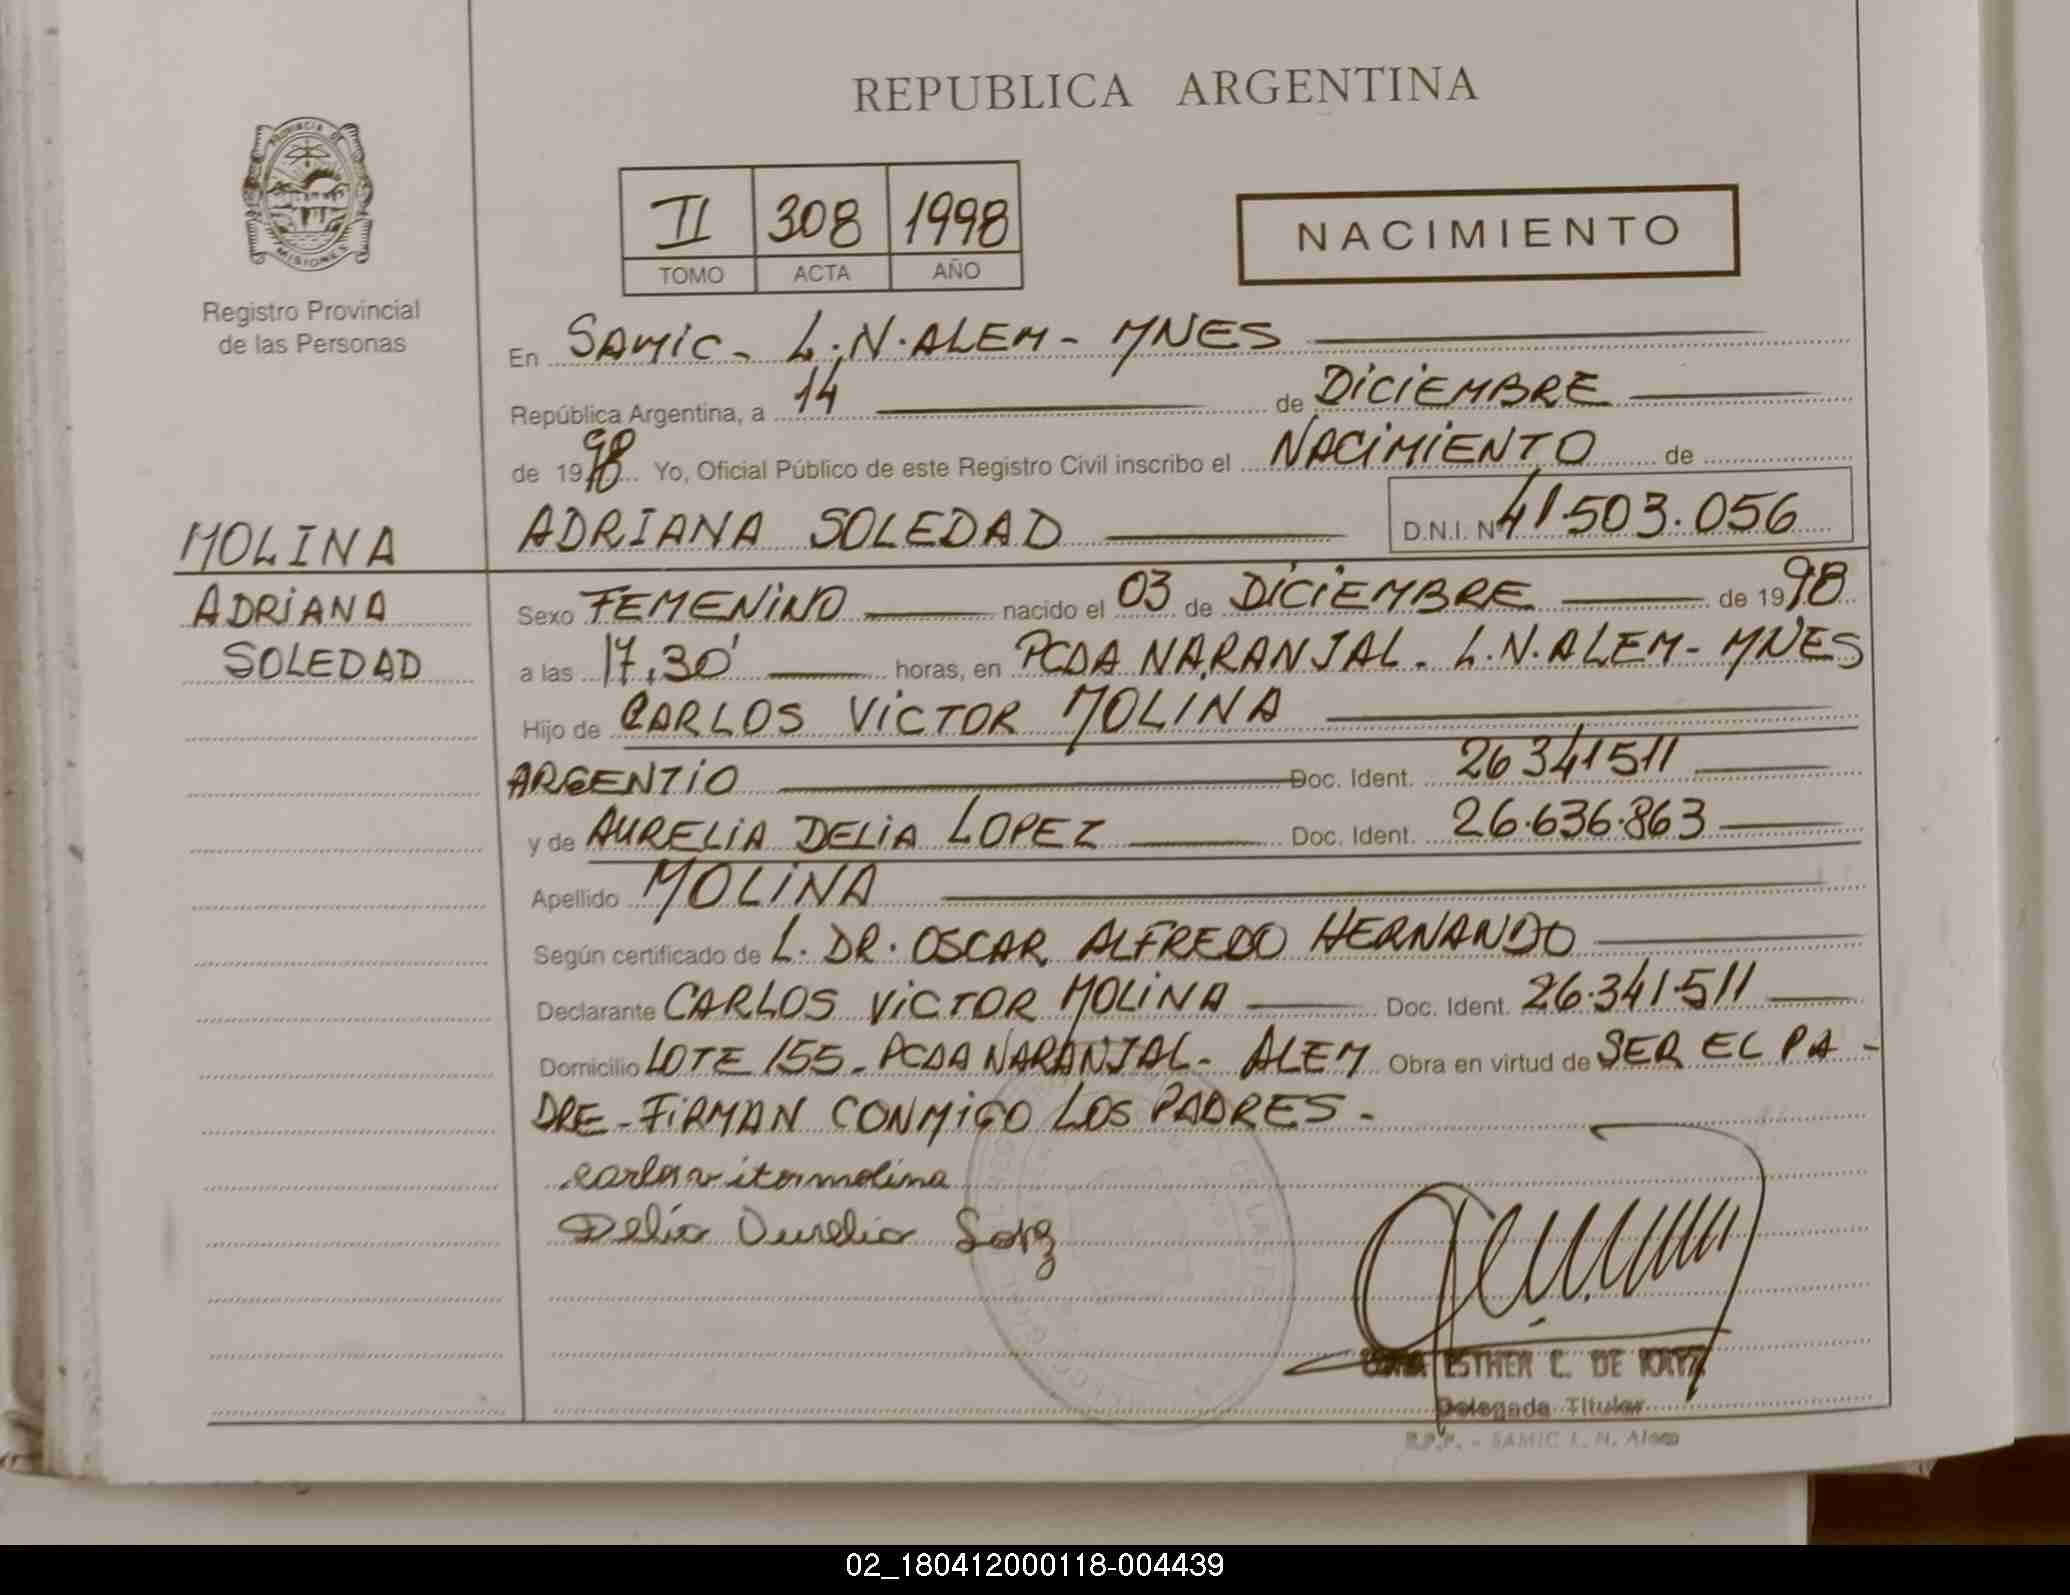 REPUBLICA ARGENTINA
PROVINCIA DE
MISIONES
Registro Provincial
de las Personas
II 308 1998
TOMO ACTA AÑO
NACIMIENTO
En SAMIC - L.N.ALEM - MNES
República Argentina, a 14 de DICIEMBRE
de 1998 Yo, Oficial Público de este Registro Civil inscribo el NACIMIENTO de
ADRIANA SOLEDAD D.N.I. Nº 41.503.056
MOLINA
ADRIANA
SOLEDAD
Sexo FEMENINO nacido el 03 de DICIEMBRE de 1998
a las 17,30' horas, en PCDA NARANJAL. L.N.ALEM - MNES
Hijo de CARLOS VICTOR MOLINA
ARGENTIO Doc. Ident. 26341511
y de AURELIA DELIA LOPEZ Doc. Ident. 26.636.863
Apellido MOLINA
Según certificado de L. DR. OSCAR ALFREDO HERNANDO
Declarante CARLOS VICTOR MOLINA Doc. Ident. 26.341.511
Domicilio LOTE 155 - PCDA NARANJAL - ALEM Obra en virtud de SER EL PA -
DRE - FIRMAN CONMIGO LOS PADRES -
carlos vitormolina
Delia Aurelia
ESTHER L. DE
Delegada Titular
R.P.P. - SAMIC L. N. Alem
02_180412000118-004439